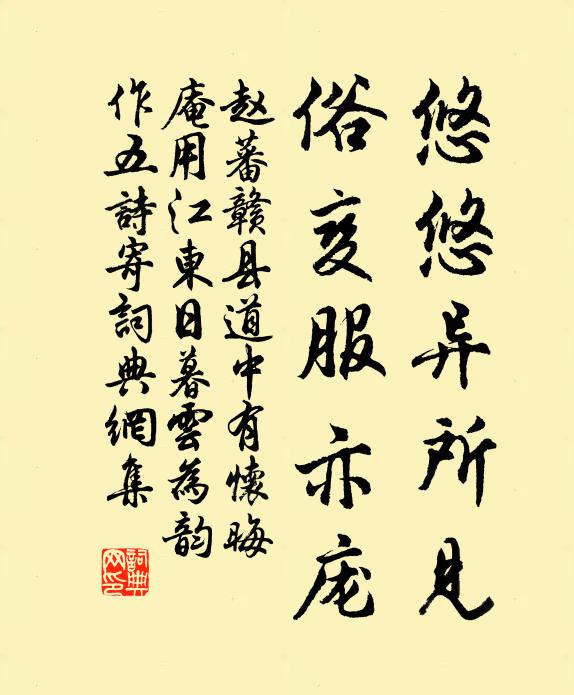 悠悠异所见
俗变服亦庞
赵蕃赣县道中有怀晦
庵用江東日暮雲為韵
作五詩寄詞典網集
詞典
网印